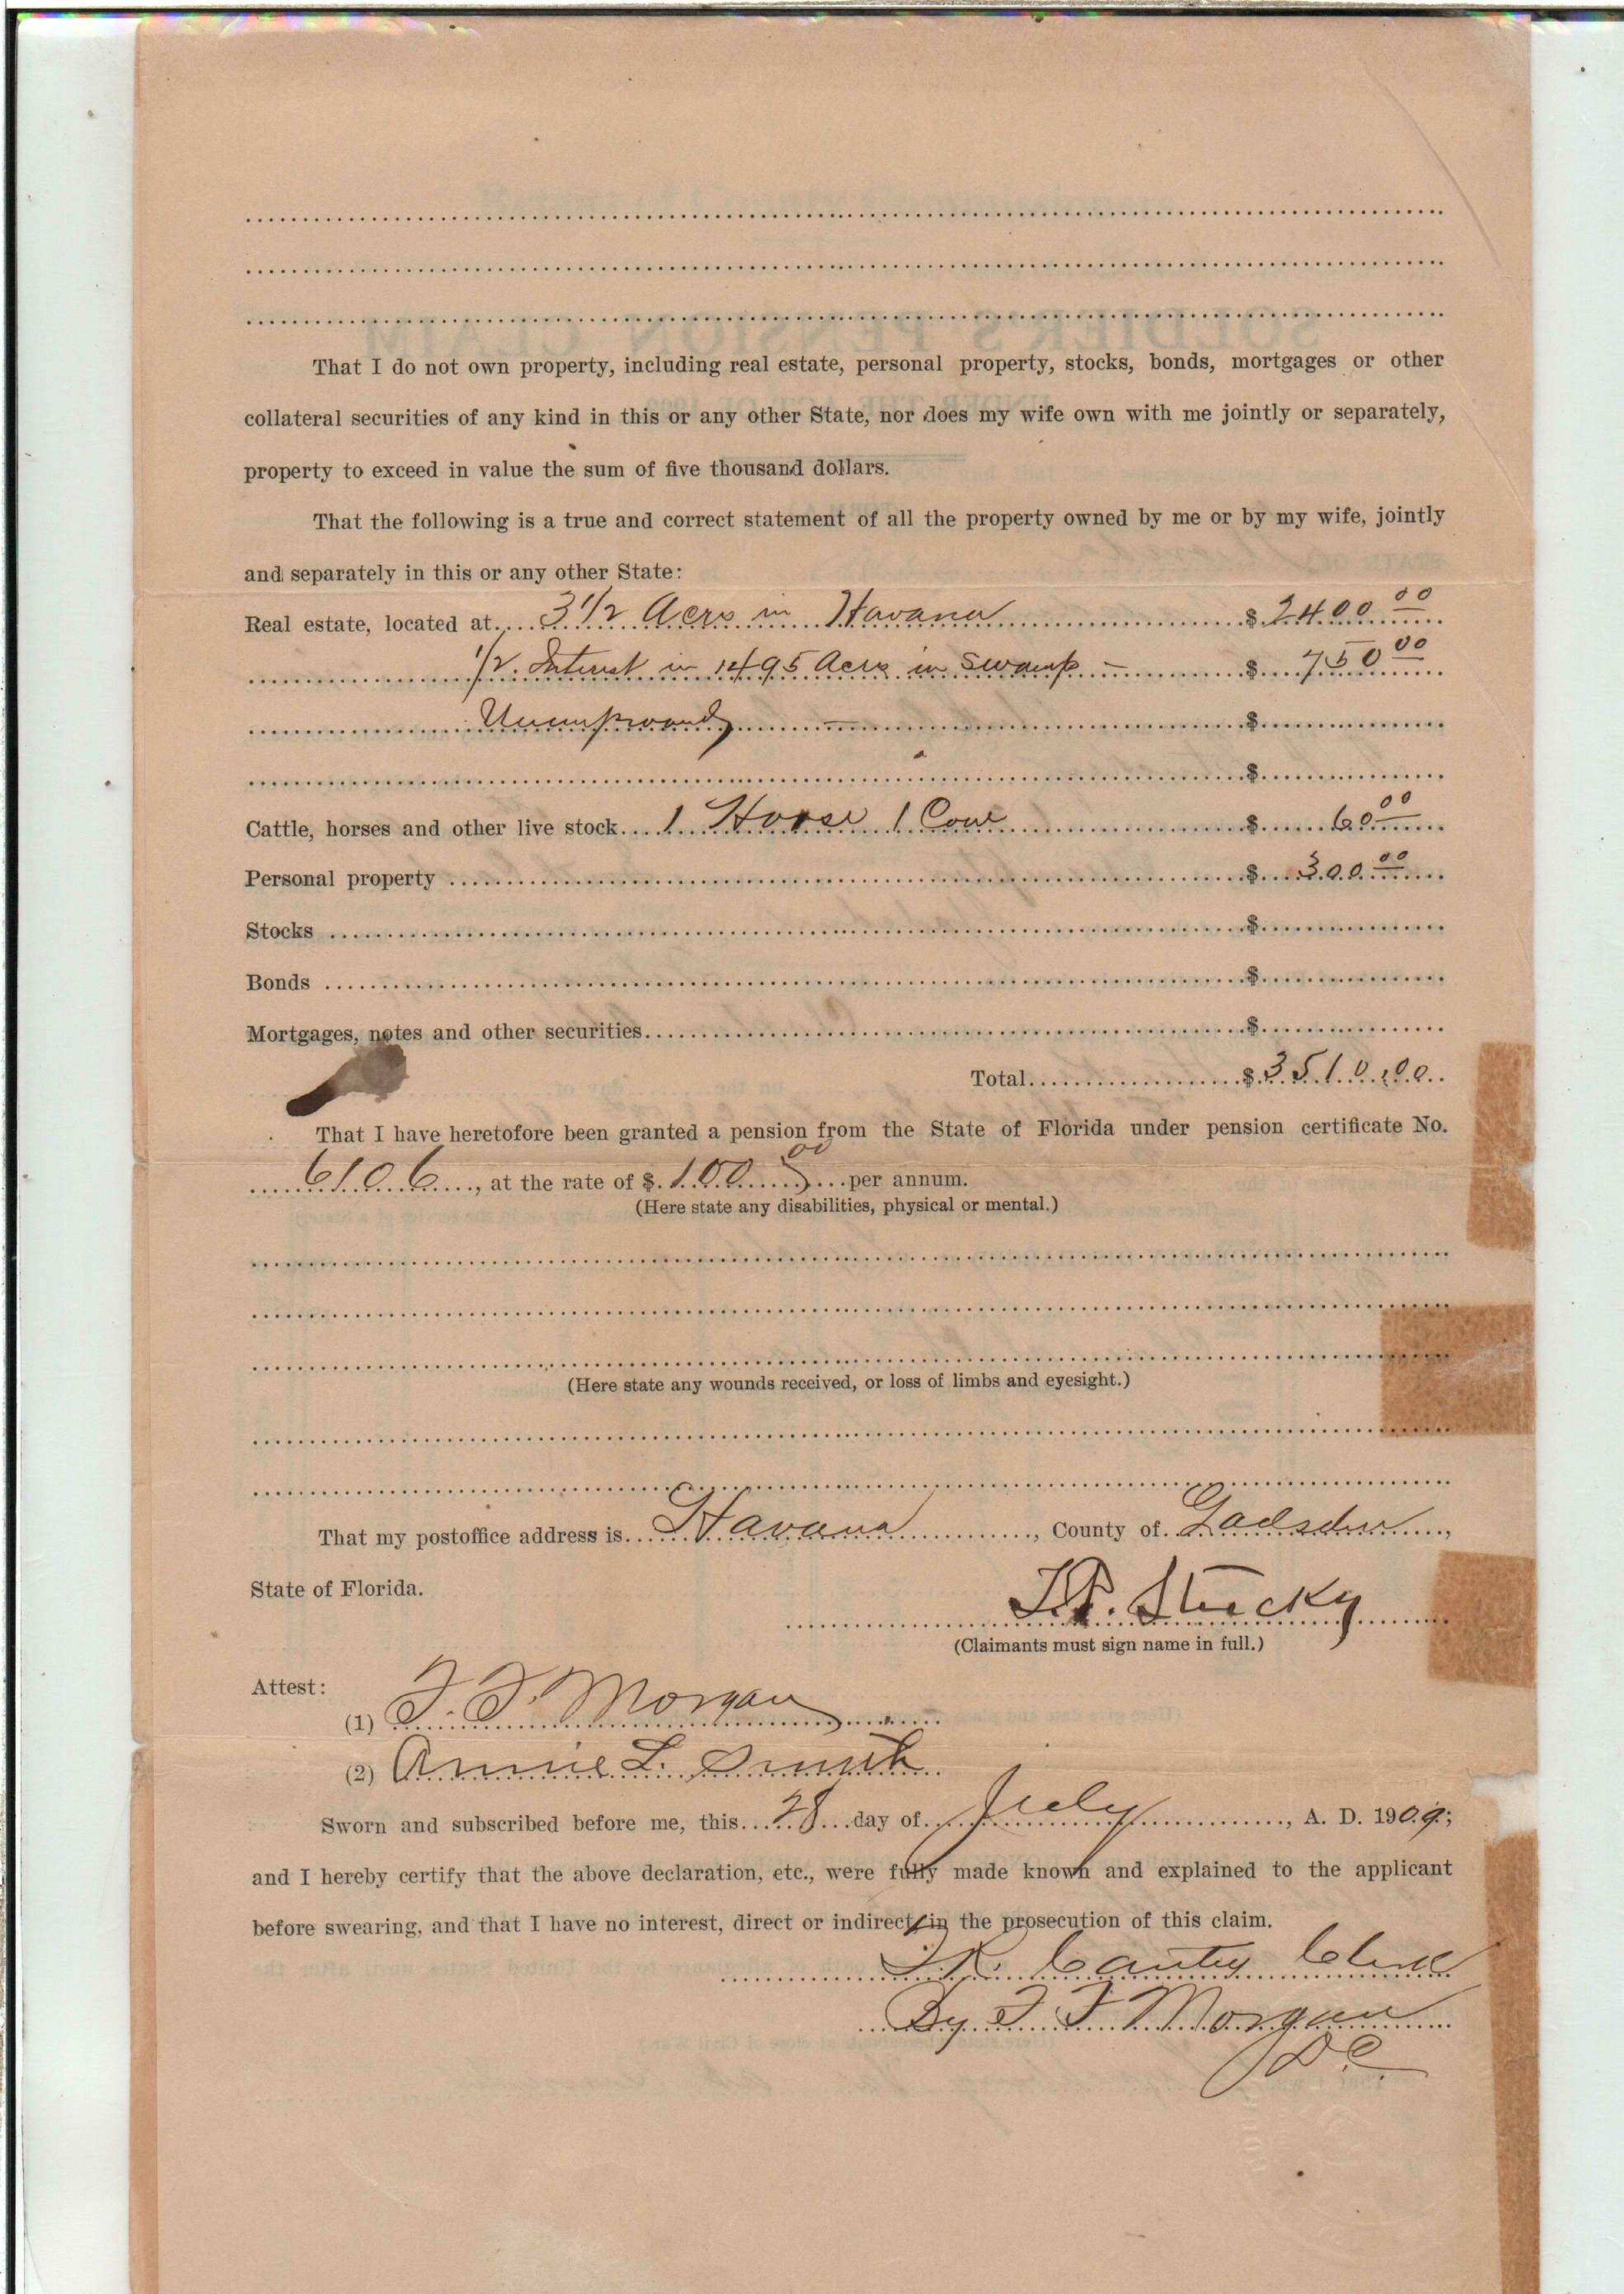 That I do not own property, including real estate, personal property, stocks, bonds, mortgages or other
collateral securities of any kind in this or any other State, nor does my wife own with me jointly or separately,
property to exceed in value the sum of five thousand dollars.
That the following is a true and correct statement of all the property owned by me or by my wife, jointly
and separately in this or any other State:
Real estate, located at 3 1/2 Acrs in Havana $ 2400 00
1/2 Interest in 1495 Acrs in Swamp - $ 750 00
$
$
Cattle, horses and other live stock 1 Horse 1 Cow $ 60 00
Personal property $ 300 00
Stocks $
Bonds $
Mortgages, notes and other securities $
Total $ 3510.00
That I have heretofore been granted a pension from the State of Florida under pension certificate No.
6106, at the rate of $ 100 00 per annum.
(Here state any disabilities, physical or mental.)
(Here state any wounds received, or loss of limbs and eyesight.)
That my postoffice address is Havana, County of Gadsden,
State of Florida.
Stucky
(Claimants must sign name in full.)
Attest:
(1) F. F. Morgan
(2) Annie L. Smith
Sworn and subscribed before me, this 28 day of July, A. D. 1909;
and I hereby certify that the above declaration, etc., were fully made known and explained to the applicant
before swearing, and that I have no interest, direct or indirect, in the prosecution of this claim.
Cantey Clerk
By F. F. Morgan
D.C.